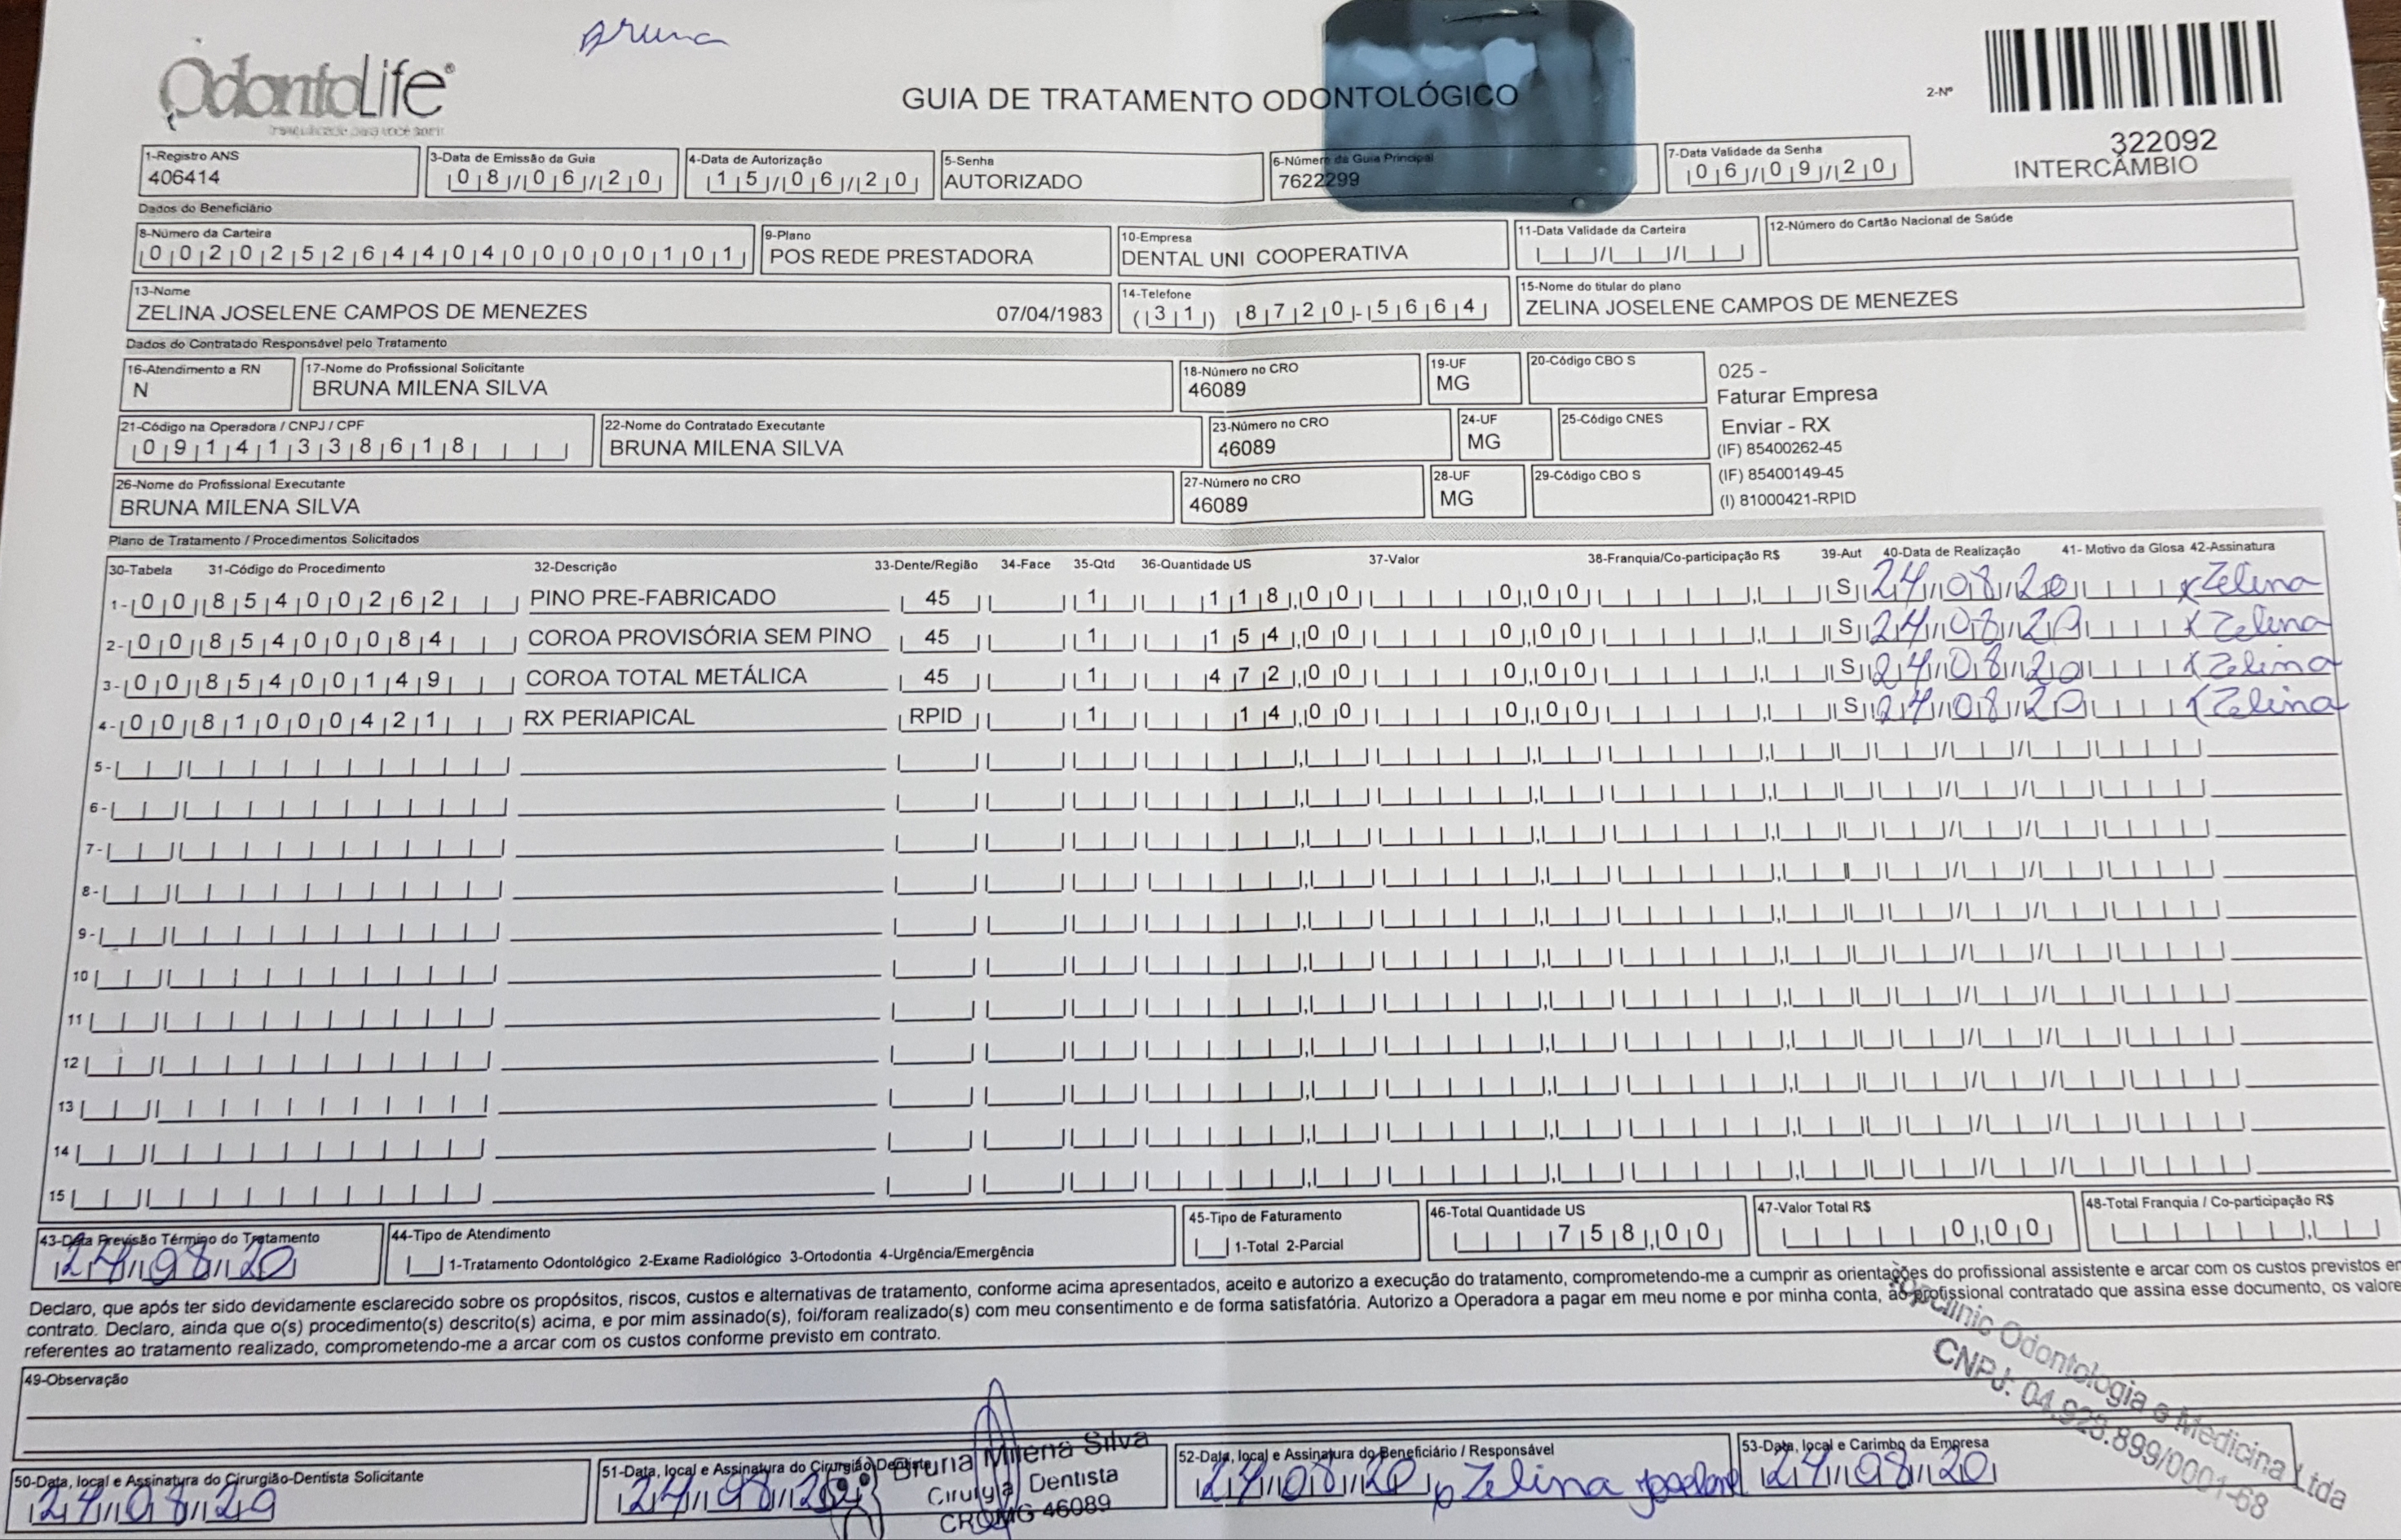 Bruna
OdontoLife®
GUIA DE TRATAMENTO ODONTOLÓGICO
2-Nº
322092
INTERCÂMBIO
1-Registro ANS
406414
3-Data de Emissão da Guia
08/06/20
4-Data de Autorização
15/06/20
5-Senha
AUTORIZADO
6-Número da Guia Principal
7622299
7-Data Validade da Senha
06/09/20
Dados do Beneficiário
8-Número da Carteira
00202526440400000101
9-Plano
POS REDE PRESTADORA
10-Empresa
DENTAL UNI COOPERATIVA
11-Data Validade da Carteira
12-Número do Cartão Nacional de Saúde
13-Nome
ZELINA JOSELENE CAMPOS DE MENEZES 07/04/1983
14-Telefone
(31) 8720-5664
15-Nome do titular do plano
ZELINA JOSELENE CAMPOS DE MENEZES
Dados do Contratado Responsável pelo Tratamento
16-Atendimento a RN
N
17-Nome do Profissional Solicitante
BRUNA MILENA SILVA
18-Número no CRO
46089
19-UF
MG
20-Código CBO S
025 -
Faturar Empresa
Enviar - RX
(IF) 85400262-45
(IF) 85400149-45
(I) 81000421-RPID
21-Código na Operadora / CNPJ / CPF
09141338618
22-Nome do Contratado Executante
BRUNA MILENA SILVA
23-Número no CRO
46089
24-UF
MG
25-Código CNES
26-Nome do Profissional Executante
BRUNA MILENA SILVA
27-Número no CRO
46089
28-UF
MG
29-Código CBO S
Plano de Tratamento / Procedimentos Solicitados
30-Tabela 31-Código do Procedimento 32-Descrição 33-Dente/Região 34-Face 35-Qtd 36-Quantidade US 37-Valor 38-Franquia/Co-participação R$ 39-Aut 40-Data de Realização 41- Motivo da Glosa 42-Assinatura
1- 00 85400262 PINO PRE-FABRICADO 45 1 118,00 0,00 S 24/08/20 x Zelina
2- 00 85400084 COROA PROVISÓRIA SEM PINO 45 1 154,00 0,00 S 24/08/20 x Zelina
3- 00 85400149 COROA TOTAL METÁLICA 45 1 472,00 0,00 S 24/08/20 x Zelina
4- 00 81000421 RX PERIAPICAL RPID 1 14,00 0,00 S 24/08/20 x Zelina
5-
6-
7-
8-
9-
10
11
12
13
14
15
43-Data Previsão Término do Tratamento
24/08/20
44-Tipo de Atendimento
1-Tratamento Odontológico 2-Exame Radiológico 3-Ortodontia 4-Urgência/Emergência
45-Tipo de Faturamento
1-Total 2-Parcial
46-Total Quantidade US
758,00
47-Valor Total R$
0,00
48-Total Franquia / Co-participação R$
Declaro, que após ter sido devidamente esclarecido sobre os propósitos, riscos, custos e alternativas de tratamento, conforme acima apresentados, aceito e autorizo a execução do tratamento, comprometendo-me a cumprir as orientações do profissional assistente e arcar com os custos previstos em
contrato. Declaro, ainda que o(s) procedimento(s) descrito(s) acima, e por mim assinado(s), foi/foram realizado(s) com meu consentimento e de forma satisfatória. Autorizo a Operadora a pagar em meu nome e por minha conta, ao profissional contratado que assina esse documento, os valore
referentes ao tratamento realizado, comprometendo-me a arcar com os custos conforme previsto em contrato.
49-Observação
50-Data, local e Assinatura do Cirurgião-Dentista Solicitante
24/08/20
51-Data, local e Assinatura do Cirurgião Dentista
24/08/20
Bruna Milena Silva
Cirurgiã Dentista
CROMG 46089
52-Data, local e Assinatura do Beneficiário / Responsável
24/08/20 Zelina Joselene
53-Data, local e Carimbo da Empresa
24/08/20
Odontologia e Medicina Ltda
CNPJ: 04.928.899/0001-68